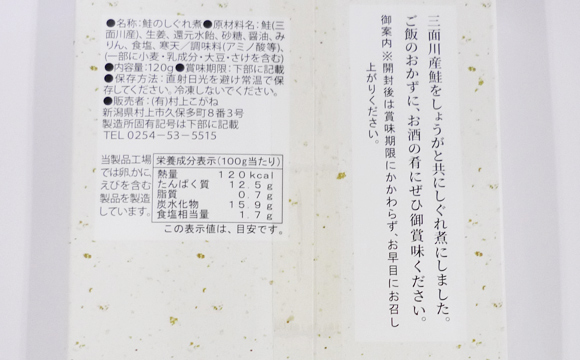 ●名称:鮭のしぐれ煮●原材料名:鮭(三
面川産)、生姜、還元水飴、砂糖、醤油、み
りん、食塩、寒天／調味料(アミノ酸等)、
(一部に小麦・乳成分・大豆・さけを含む)
●内容量:120g●賞味期限:下部に記載
●保存方法:直射日光を避け常温で保
存してください。冷凍しないでください。
●販売者:(有)村上こがね
新潟県村上市久保多町8番3号
製造所固有記号は下部に記載
TEL 0254-53-5515
当製品工場
では卵、かに、
えびを含む
製品を製造
しています。
栄養成分表示(100g当たり)
熱量 120kcal
たんぱく質 12.5g
脂質 0.7g
炭水化物 15.9g
食塩相当量 1.7g
この表示値は、目安です。
三面川産鮭をしょうがと共にしぐれ煮にしました。
ご飯のおかずに、お酒の肴にぜひ御賞味ください。
御案内※開封後は賞味期限にかかわらず、お早目にお召し
上がりください。